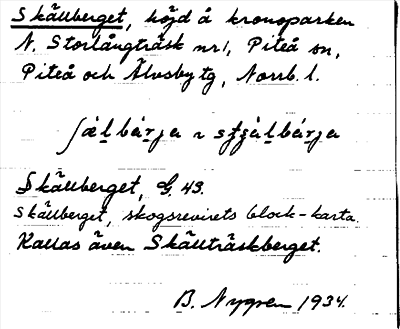 Skällberget, höjd å kronoparken
N. Storlångträsk nr 1, Piteå sn,
Piteå och Älvsby tg, Norrb. l.
ʃæ̀lbærja ~ stʃàlbærja
Skällberget, G. 43.
Skällberget, skogsrevirets block-karta.
Kallas även Skällträskberget.
B. Nygren 1934.